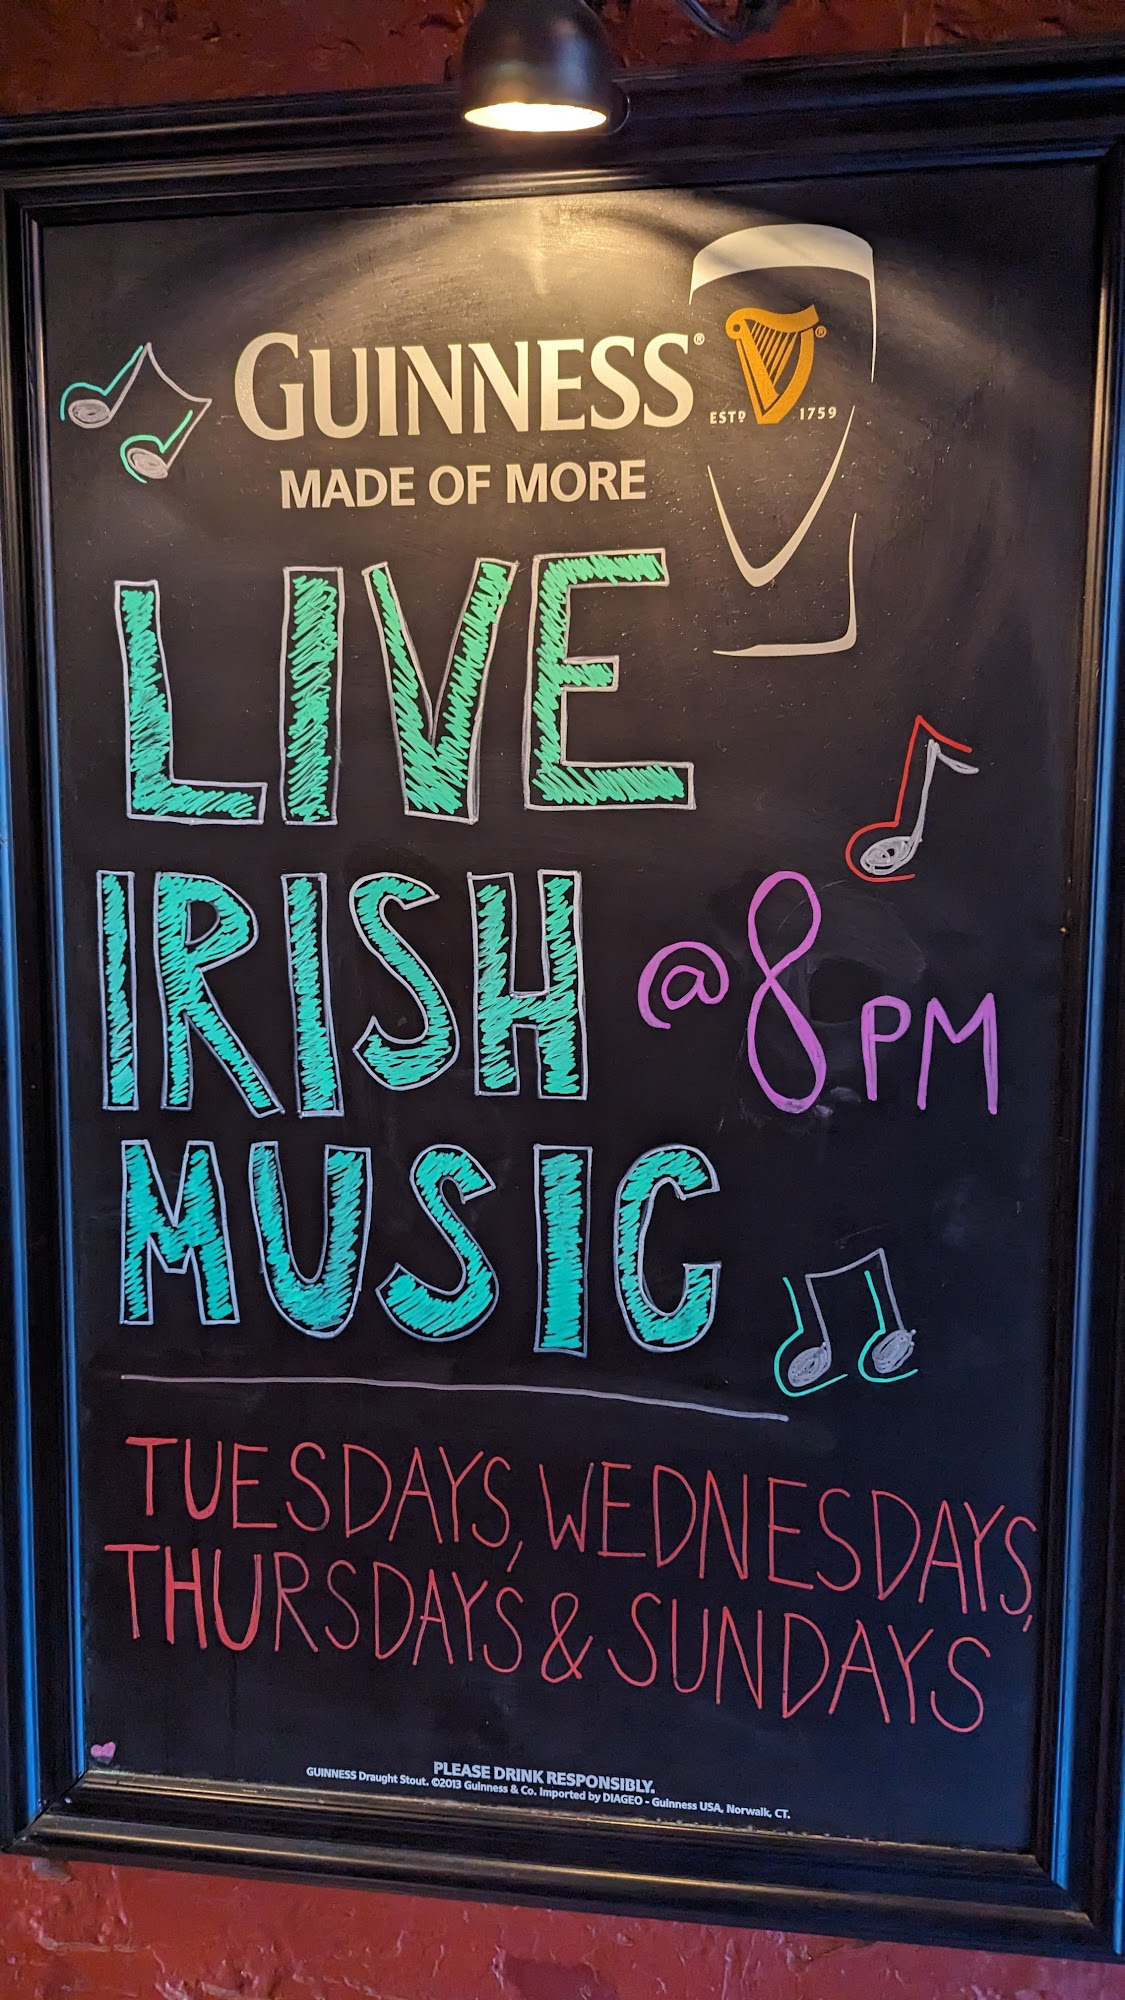 GUINNESS®
ESTD 1759 ®
MADE OF MORE
LIVE
IRISH @ 8 PM
MUSIC
TUESDAYS, WEDNESDAYS,
THURSDAYS & SUNDAYS
PLEASE DRINK RESPONSIBLY.
GUINNESS Draught Stout. ©2013 Guinness & Co. Imported by DIAGEO - Guinness USA, Norwalk, CT.